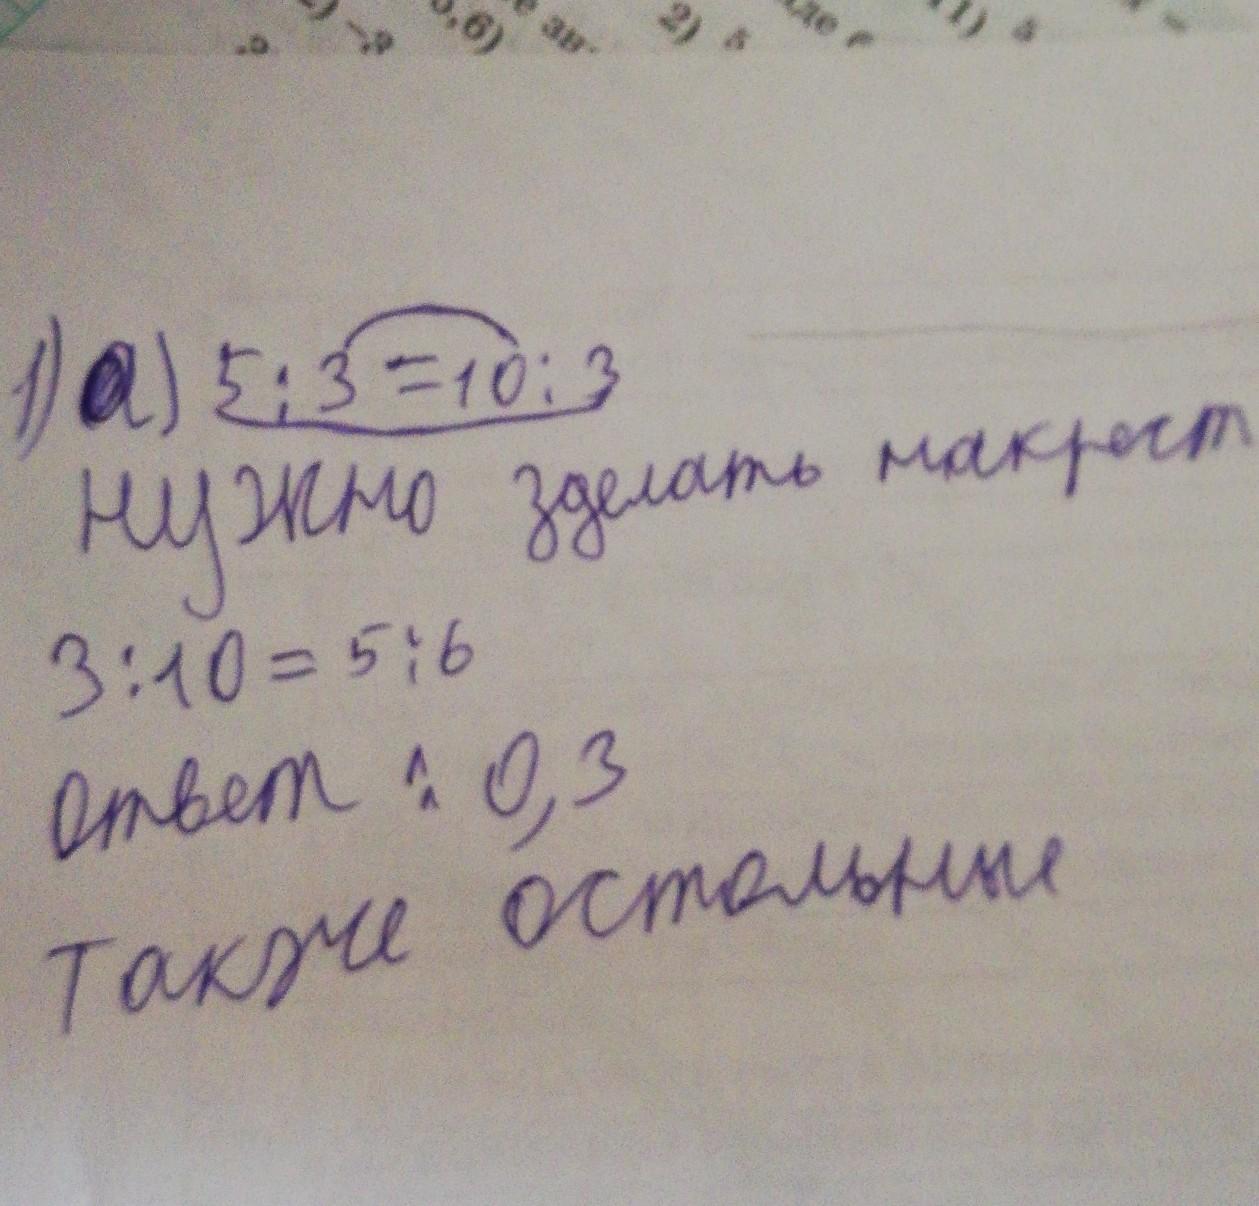 2) 5,6) 2) 1)
1) а) 5 : 3 = 10 : 3
нужно зделать накрест
3 : 10 = 5 : 6
ответ : 0,3
также остальные